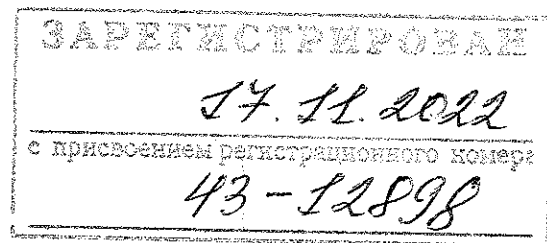 ЗАРЕГИСТРИРОВАН
17.11.2022
с присвоением регистрационного номера
43-12898